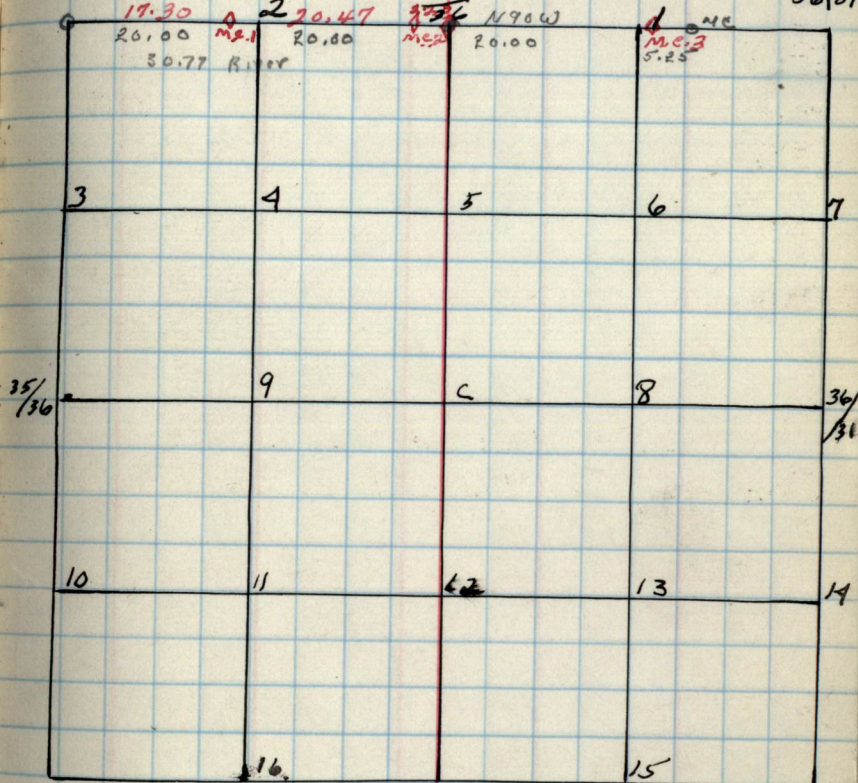 17.30 2 20.47 N90W 1 MC
20.00 M.C.1 20.00 M.C.2 20.00 M.C.3
30.77 River 5.25
3 4 5 6 7
35/36 9 C 8 36/31
10 11 12 13 14
16 15